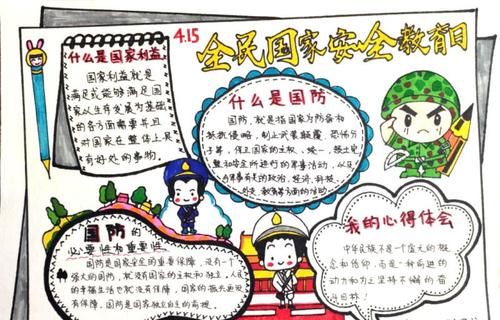 4.15
全民国家安全教育日
什么是国家利益
国家利益就是
满足或能够满足国
家以生存发展为基础
的各方面需要并且
对国家在整体上具
有好处的事物.
什么是国防
国防,就是指国家为防备和
抵抗侵略,制止武装颠覆,
保卫国家的主权、统一、领土完
整和安全所进行的军事活动,以及
与军事有关的政治、经济、科技、
外交、教育等方面的活动.
国防的
必要性和重要性
国防是国家安全的重要保障,没有一个
强大的国防,就没有国家的主权和独立,人民
的幸福生活也就没有保障,国家的振兴也没
有保障,国防是国家独立自主的前提.
我的心得体会
中华民族不是一个虚无的概
念和信仰,而是一种前进的
动力和力上坚持不懈的奋
斗目标!